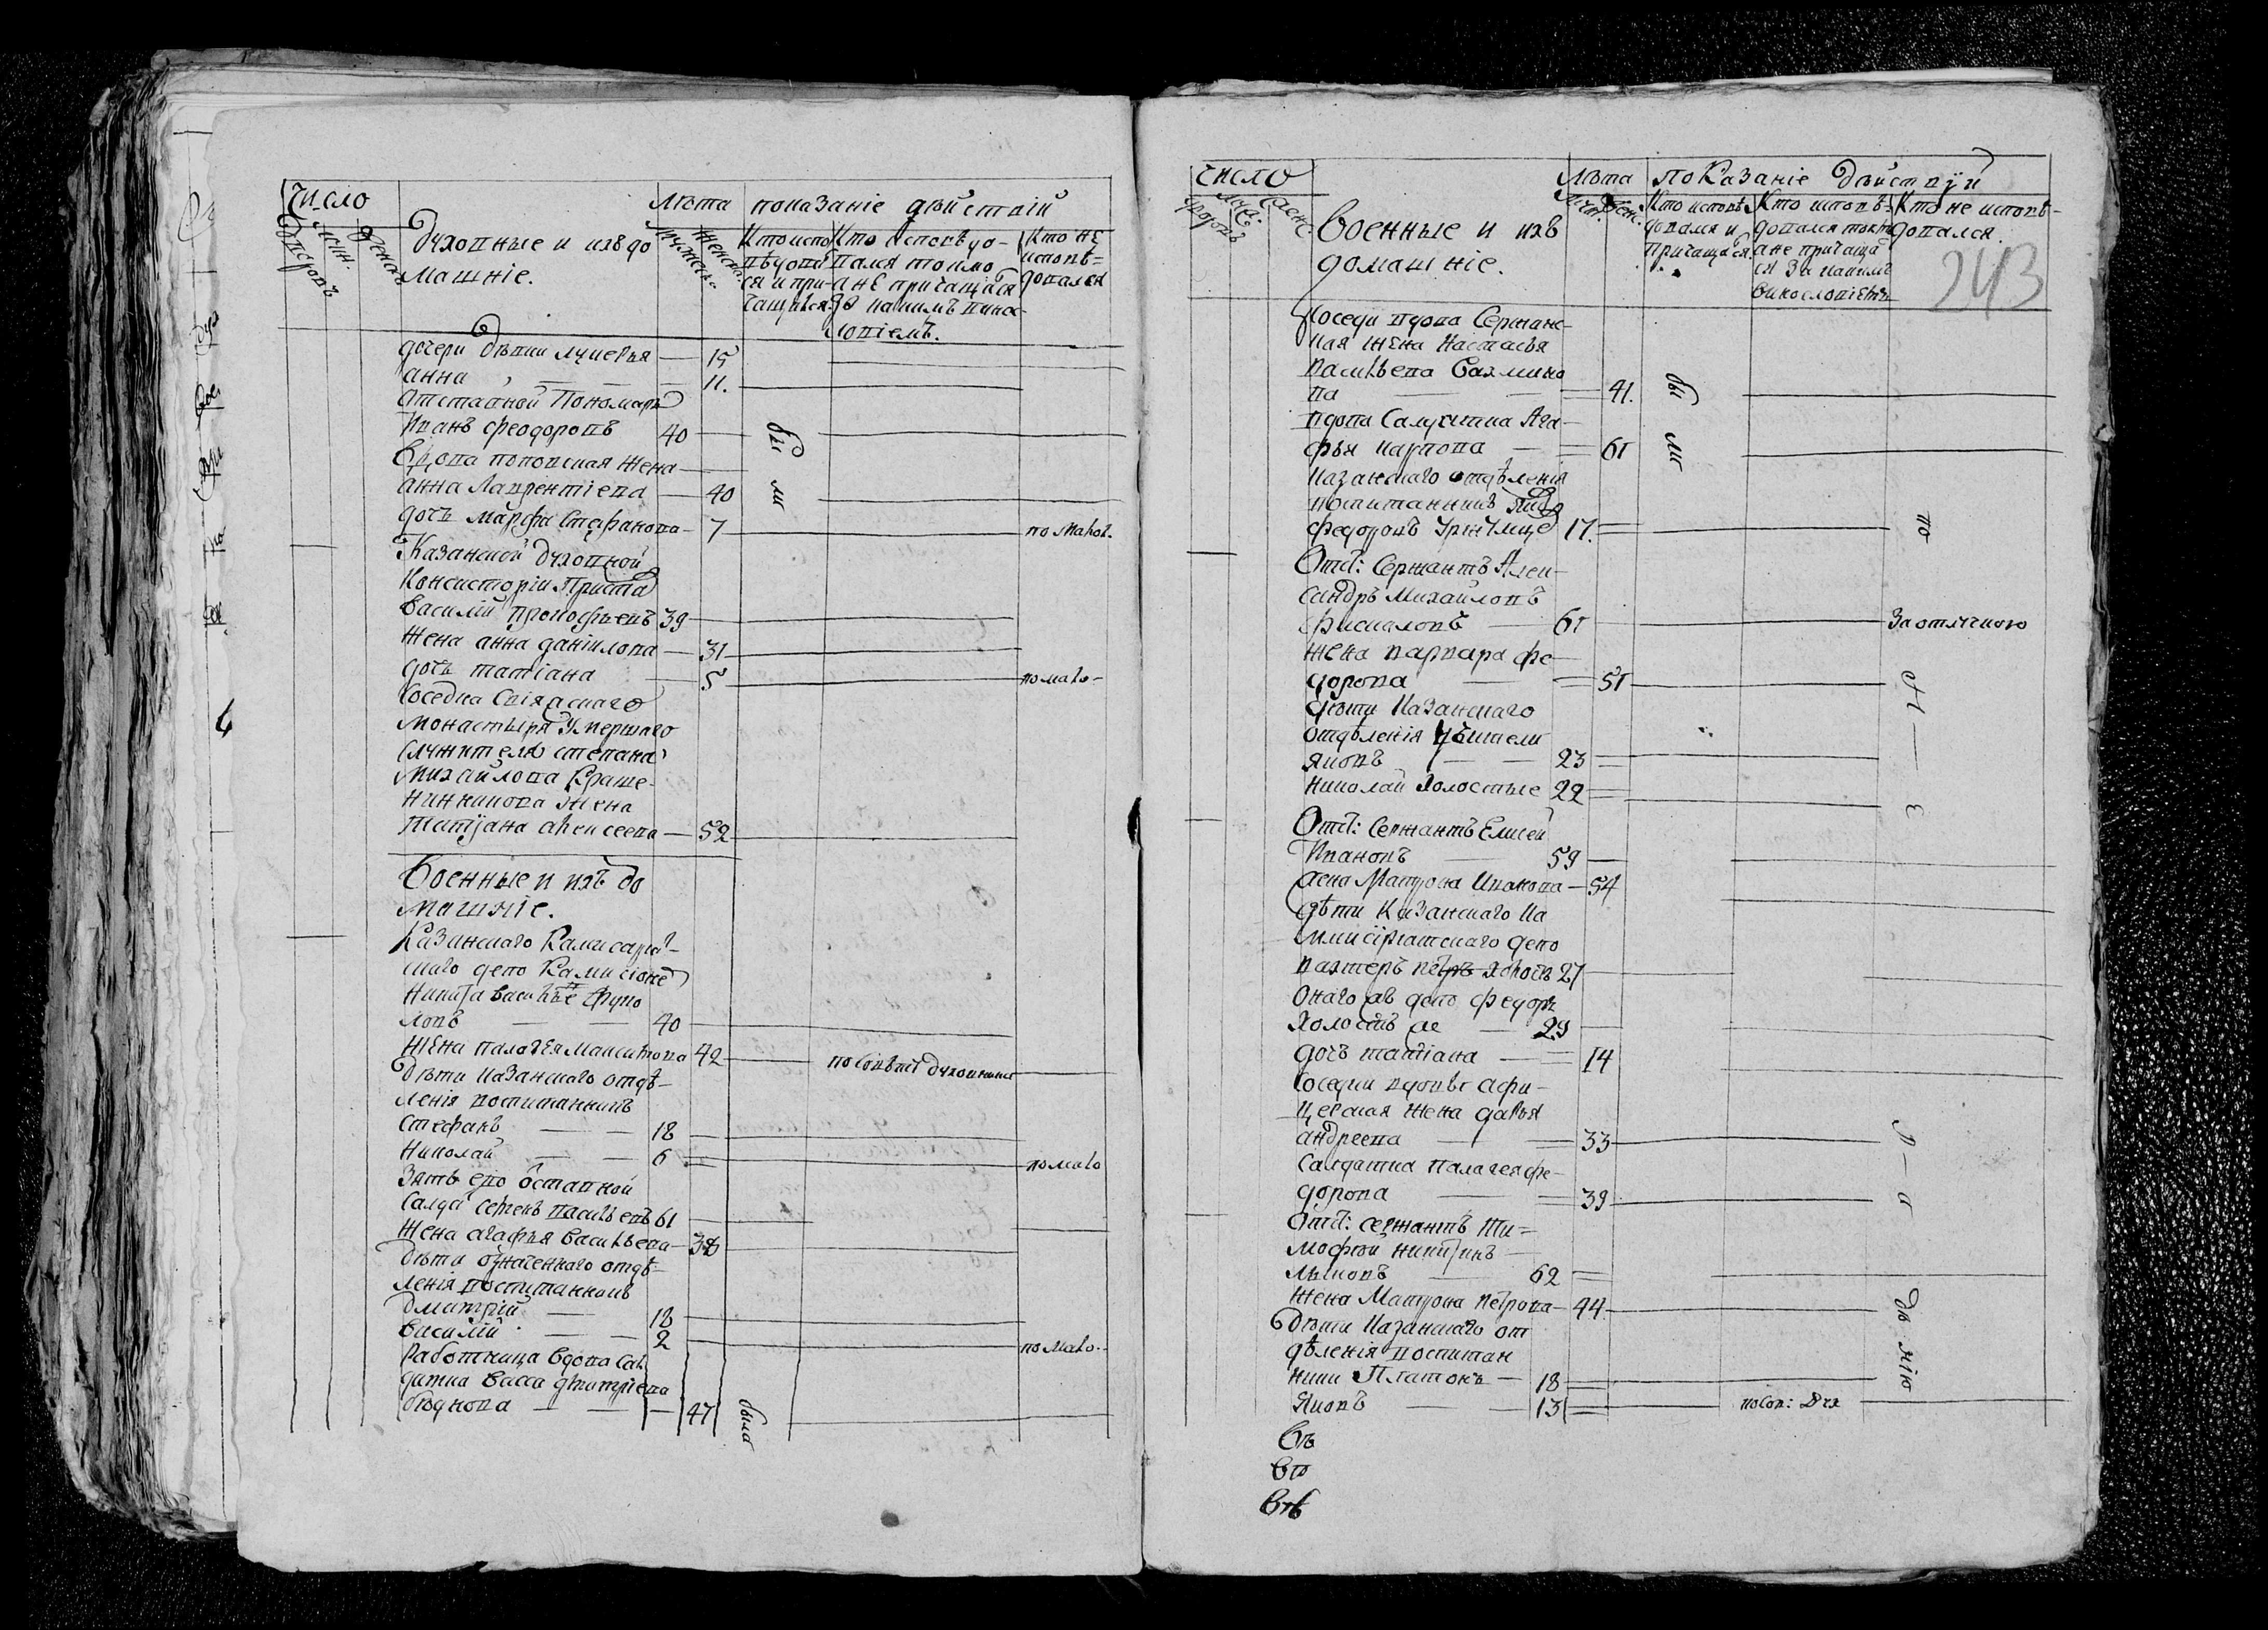 число
Дворовъ
Муж.
Женск.
Духовные и ихъ до
машніе.
Лѣта
мужеска
женска
показаніе действій
Кто испо
вѣдовал
ся и при-
чащался
Кто исповѣдо-
вался токмо
а не причащался
за какимъ вино-
словіемъ.
Кто не
исповѣ-
довался
дочери дѣвки Лукерья — 15
анна — 11.
Отставной Пономарь
Иванъ Феодоровъ 40
были
Вдова поповская жена
анна Лаврентіева — 40
дочь Марфа Стефанова — 7 по мало.
Казанской духовной
Консисторіи Приста
Василій Прокофьевъ 39
жена анна даниилова — 31
дочь татіана — 5 по мало-
Соседка Свіяскаго
монастыря умершаго
служителя степана
Михайлова Краше-
нинникова жена
Татіана алексеева — 52
Военные и ихъ до
машніе.
Казанскаго Камисарат-
скаго депо Камисіоне
Никита Василье Фуно
ловъ — 40
жена палагея Максимова 42 по совѣту духовника
Дѣти Казанскаго отдѣ-
ленія воспитанникъ
Стефанъ — 18
Николай — 6 по мало
Зять ево Оставной
Салда Семенъ Васильевъ 61
жена агафья Васильева — 38
Дѣти означеннаго отдѣ-
ленія воспитанновъ
Дмитрій — 18
Василій — 2 по мало.
Работница Вдова Сал
датка Васса дмитріева
беднова — 47 была
число
дворовъ
муж.
женс.
Военные и ихъ
домашніе.
Лѣта
муж.
жен.
показаніе действуй
Кто исповѣ
довался и
причащался.
Кто исповѣ-
довался токмо
а не причаща
ся за какимъ
винословіемъ
Кто не исповѣ-
довался.
243
Соседи вдова Сержанс-
кая жена Настасья
Васильева Сахмино
ва — 41. бы
вдова Салдатка Ага-
фья карпова — 61 ли
Казанскаго отдѣленія
воспитанникъ
Федоровъ 17. по
Отст: Сержантъ Алек-
сандръ Михайловъ
Фискаловъ — 61 За отлучкою
жена варвара фе-
дорова — 51 н
дѣти Казанскаго
отдѣленія учители
яковъ — 23
николай холостые 22 е
Отст: Сержантъ Елисей
Ивановъ — 59
жена Матрона Иванова — 54
дѣти Казанскаго Ка
мисіріатскаго депо
вахтеръ петръ холостъ 27
Онаго ж депо федоръ
холостъ же — 29
дочь татіана — 14
Соседки вдовы афи-
церская жена дарья
андреева — 33 р
Салдатка палагея фе-
дорова — 39 а
Отст: сержантъ Ти-
мофей никитинъ
лыковъ — 62
жена Матрона петрова — 44 дѣ
Дѣти Казанскаго от
дѣленія воспитан
ники Платонъ — 18 нію
Яковъ — 13 по сов: Дух
Въ
Въ
Въ